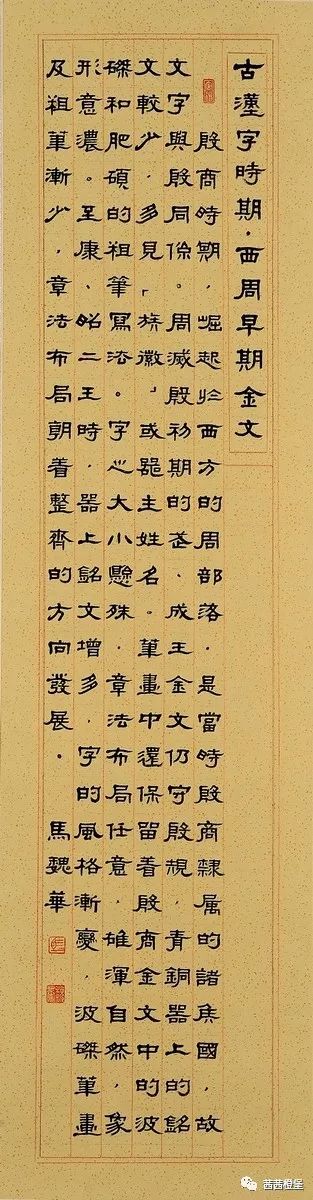 古漢字時期·西周早期金文
殷商時期，崛起於西方的周部落，是當時殷商隸属的諸侯國，故
文字與殷同係。周滅殷初期的武、成王金文仍守殷規，青銅器上的銘
文較少，多見「族徽」，或器主姓名。筆畫中還保留着殷商金文中的波
磔和肥碩的粗筆寫法。字之大小懸殊，章法布局任意，雄渾自然，象
形意濃。至康、昭二王時，器上銘文增多，字的風格漸變，波磔筆畫
及粗筆漸少，章法布局朝着整齊的方向發展。 馬魏華
茜茜橙堡